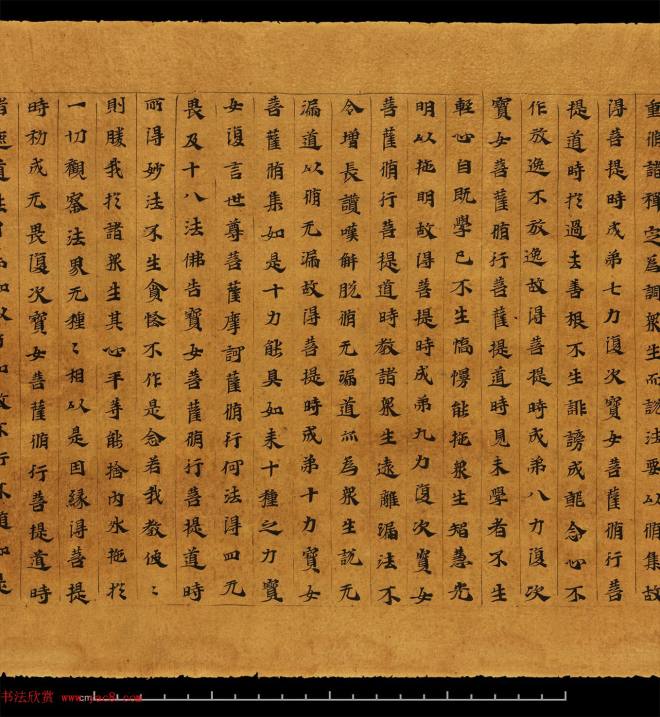 重脩諸禪定為調衆生而説法要以脩集故
得菩提時成弟七力復次寳女菩薩脩行菩
提道時於過去善根不生誹謗成就念心不
作放逸不放逸故得菩提時成弟八力復次
寳女菩薩脩行菩薩提道時見未學者不生
輕心自既學已不生憍慢能施衆生智慧光
明以施明故得菩提時成弟九力復次寳女
菩薩脩行菩提道時教諸衆生遠離漏法不
令增長讃嘆解脱脩无漏道亦為衆生説无
漏道以脩无漏故得菩提時成弟十力寳女
菩薩脩集如是十力能具如来十種之力寳
女復言世尊菩薩摩訶薩脩行何法得四无
畏及十八法佛告寳女菩薩脩行菩提道時
所得妙法不生貪恡不作是念若我教便〻
則勝我於諸衆生其心平等能捨內外施於
一切觀察法界无種〻相以是因縁得菩提
時初成无畏復次寳女菩薩脩行菩提道時
书法欣赏 www.cmjac8.com